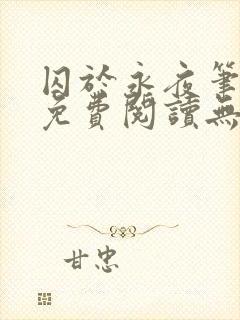 囚於永夜筆
免費閱讀無
甘忠